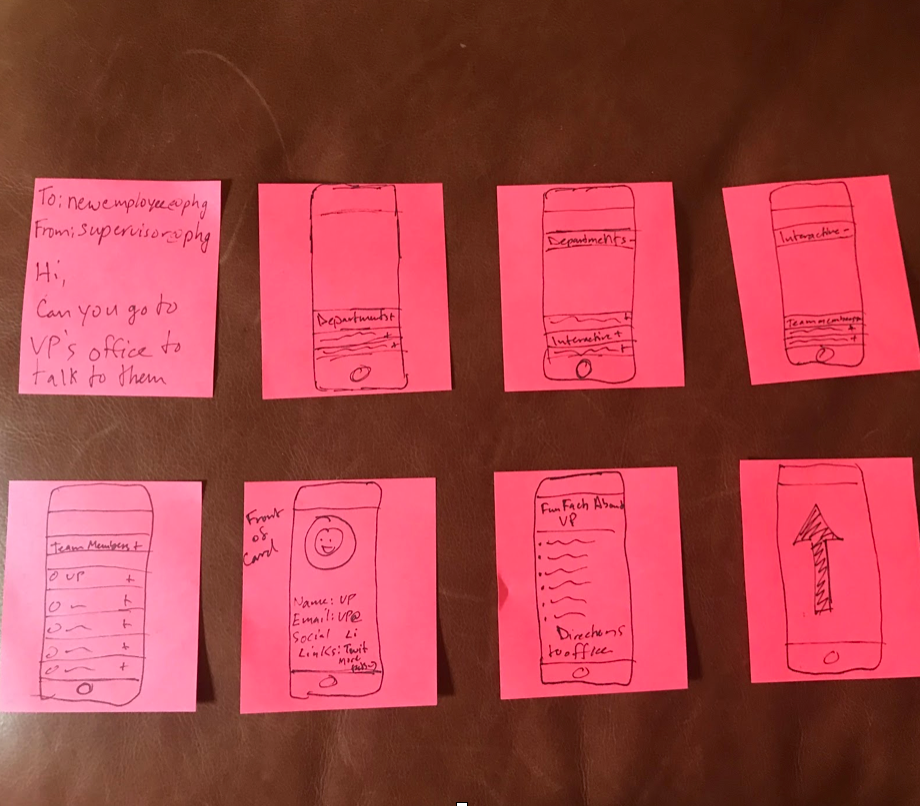 To: newemployee@phg
From: supervisor@phg
Hi,
Can you go to
VP's office to
talk to them
Departments+
+
+
Departments-
+
Interactive +
+
Interactive -
Teammembers+
+
+
Team Members +
VP +
+
+
+
+
Front
of
Card
Name: VP
Email: VP@
Social Li
Links: Twit
More
Fun Facts About
VP
Directions
to office